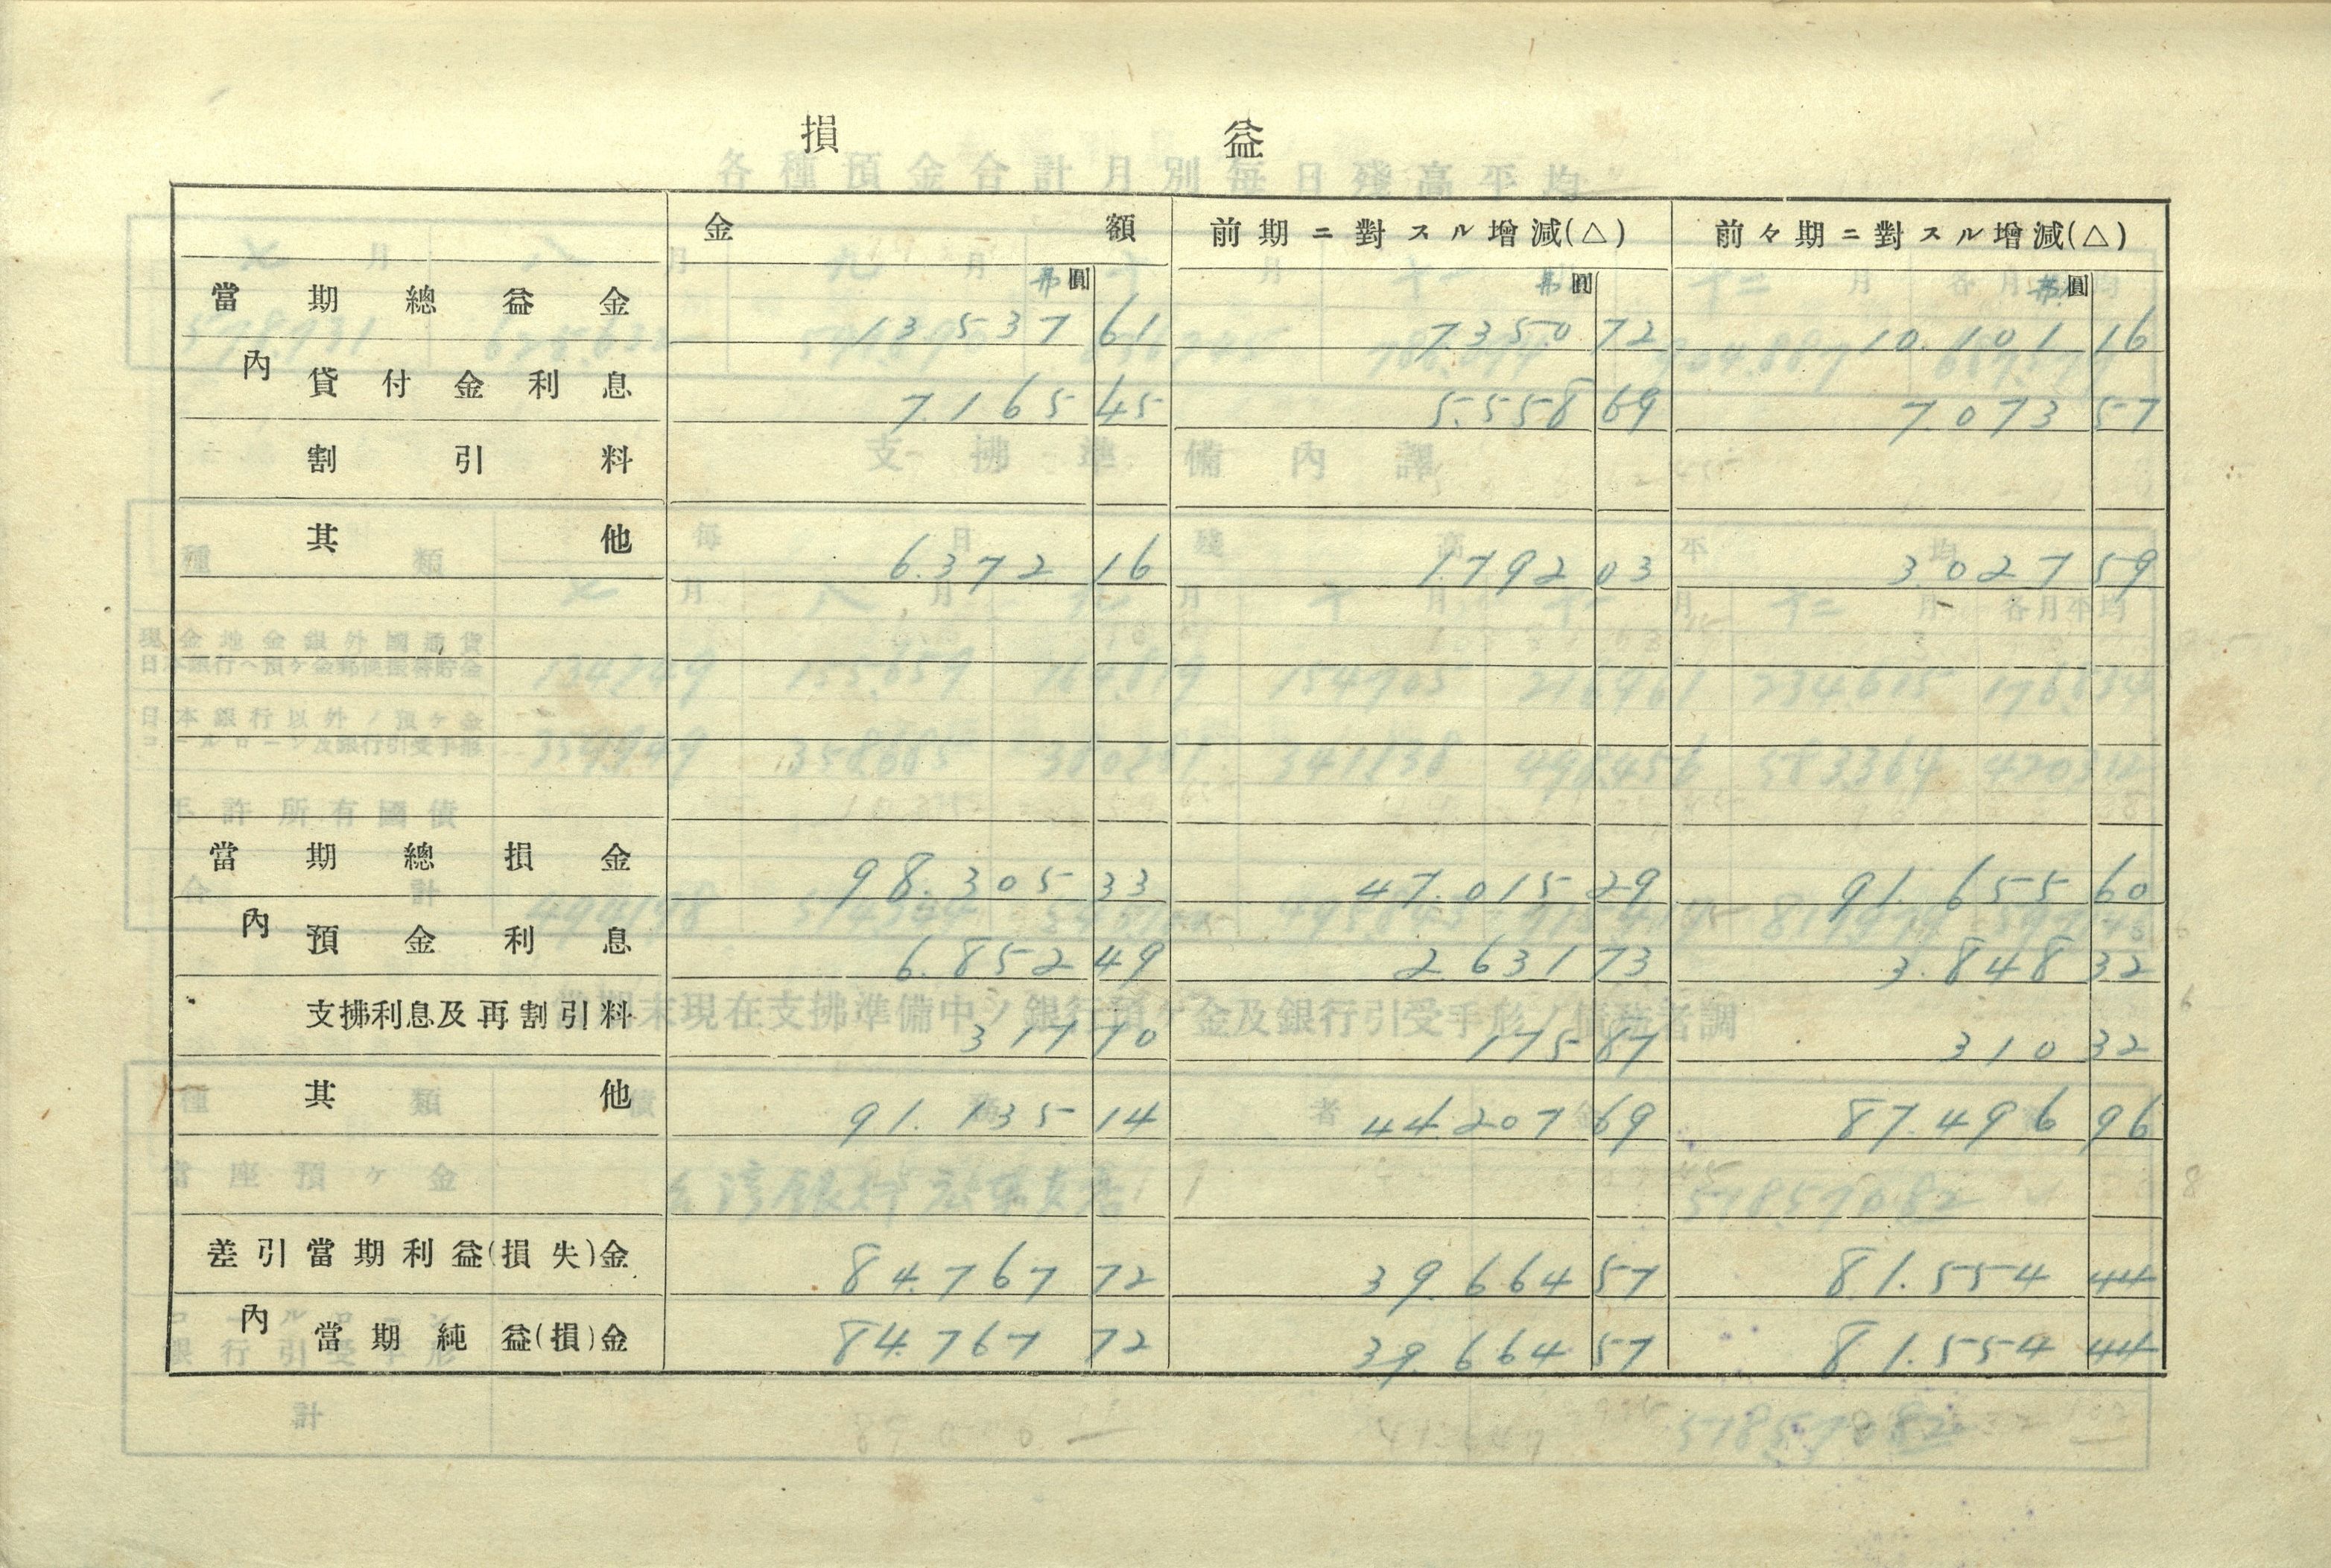 損益
金額 前期ニ對スル增減(△) 前々期ニ對スル增減(△)
弗圓 弗圓 弗圓
當期總益金 13537 61 7.350 72 10.101 16
內 貸付金利息 7.165 45 5.558 69 7.073 57
割引料
其他 6.372 16 1.792 03 3.027 59
當期總損金 98.305 33 47.015 29 91.655 60
內 預金利息 6.852 49 2631 73 3.848 32
支拂利息及再割引料 317 70 175 87 310 32
其他 91.135 14 44.207 69 87.496 96
差引當期利益(損失)金 84.767 72 39.664 57 81.554 44
內 當期純益(損)金 84.767 72 39.664 57 81.554 44